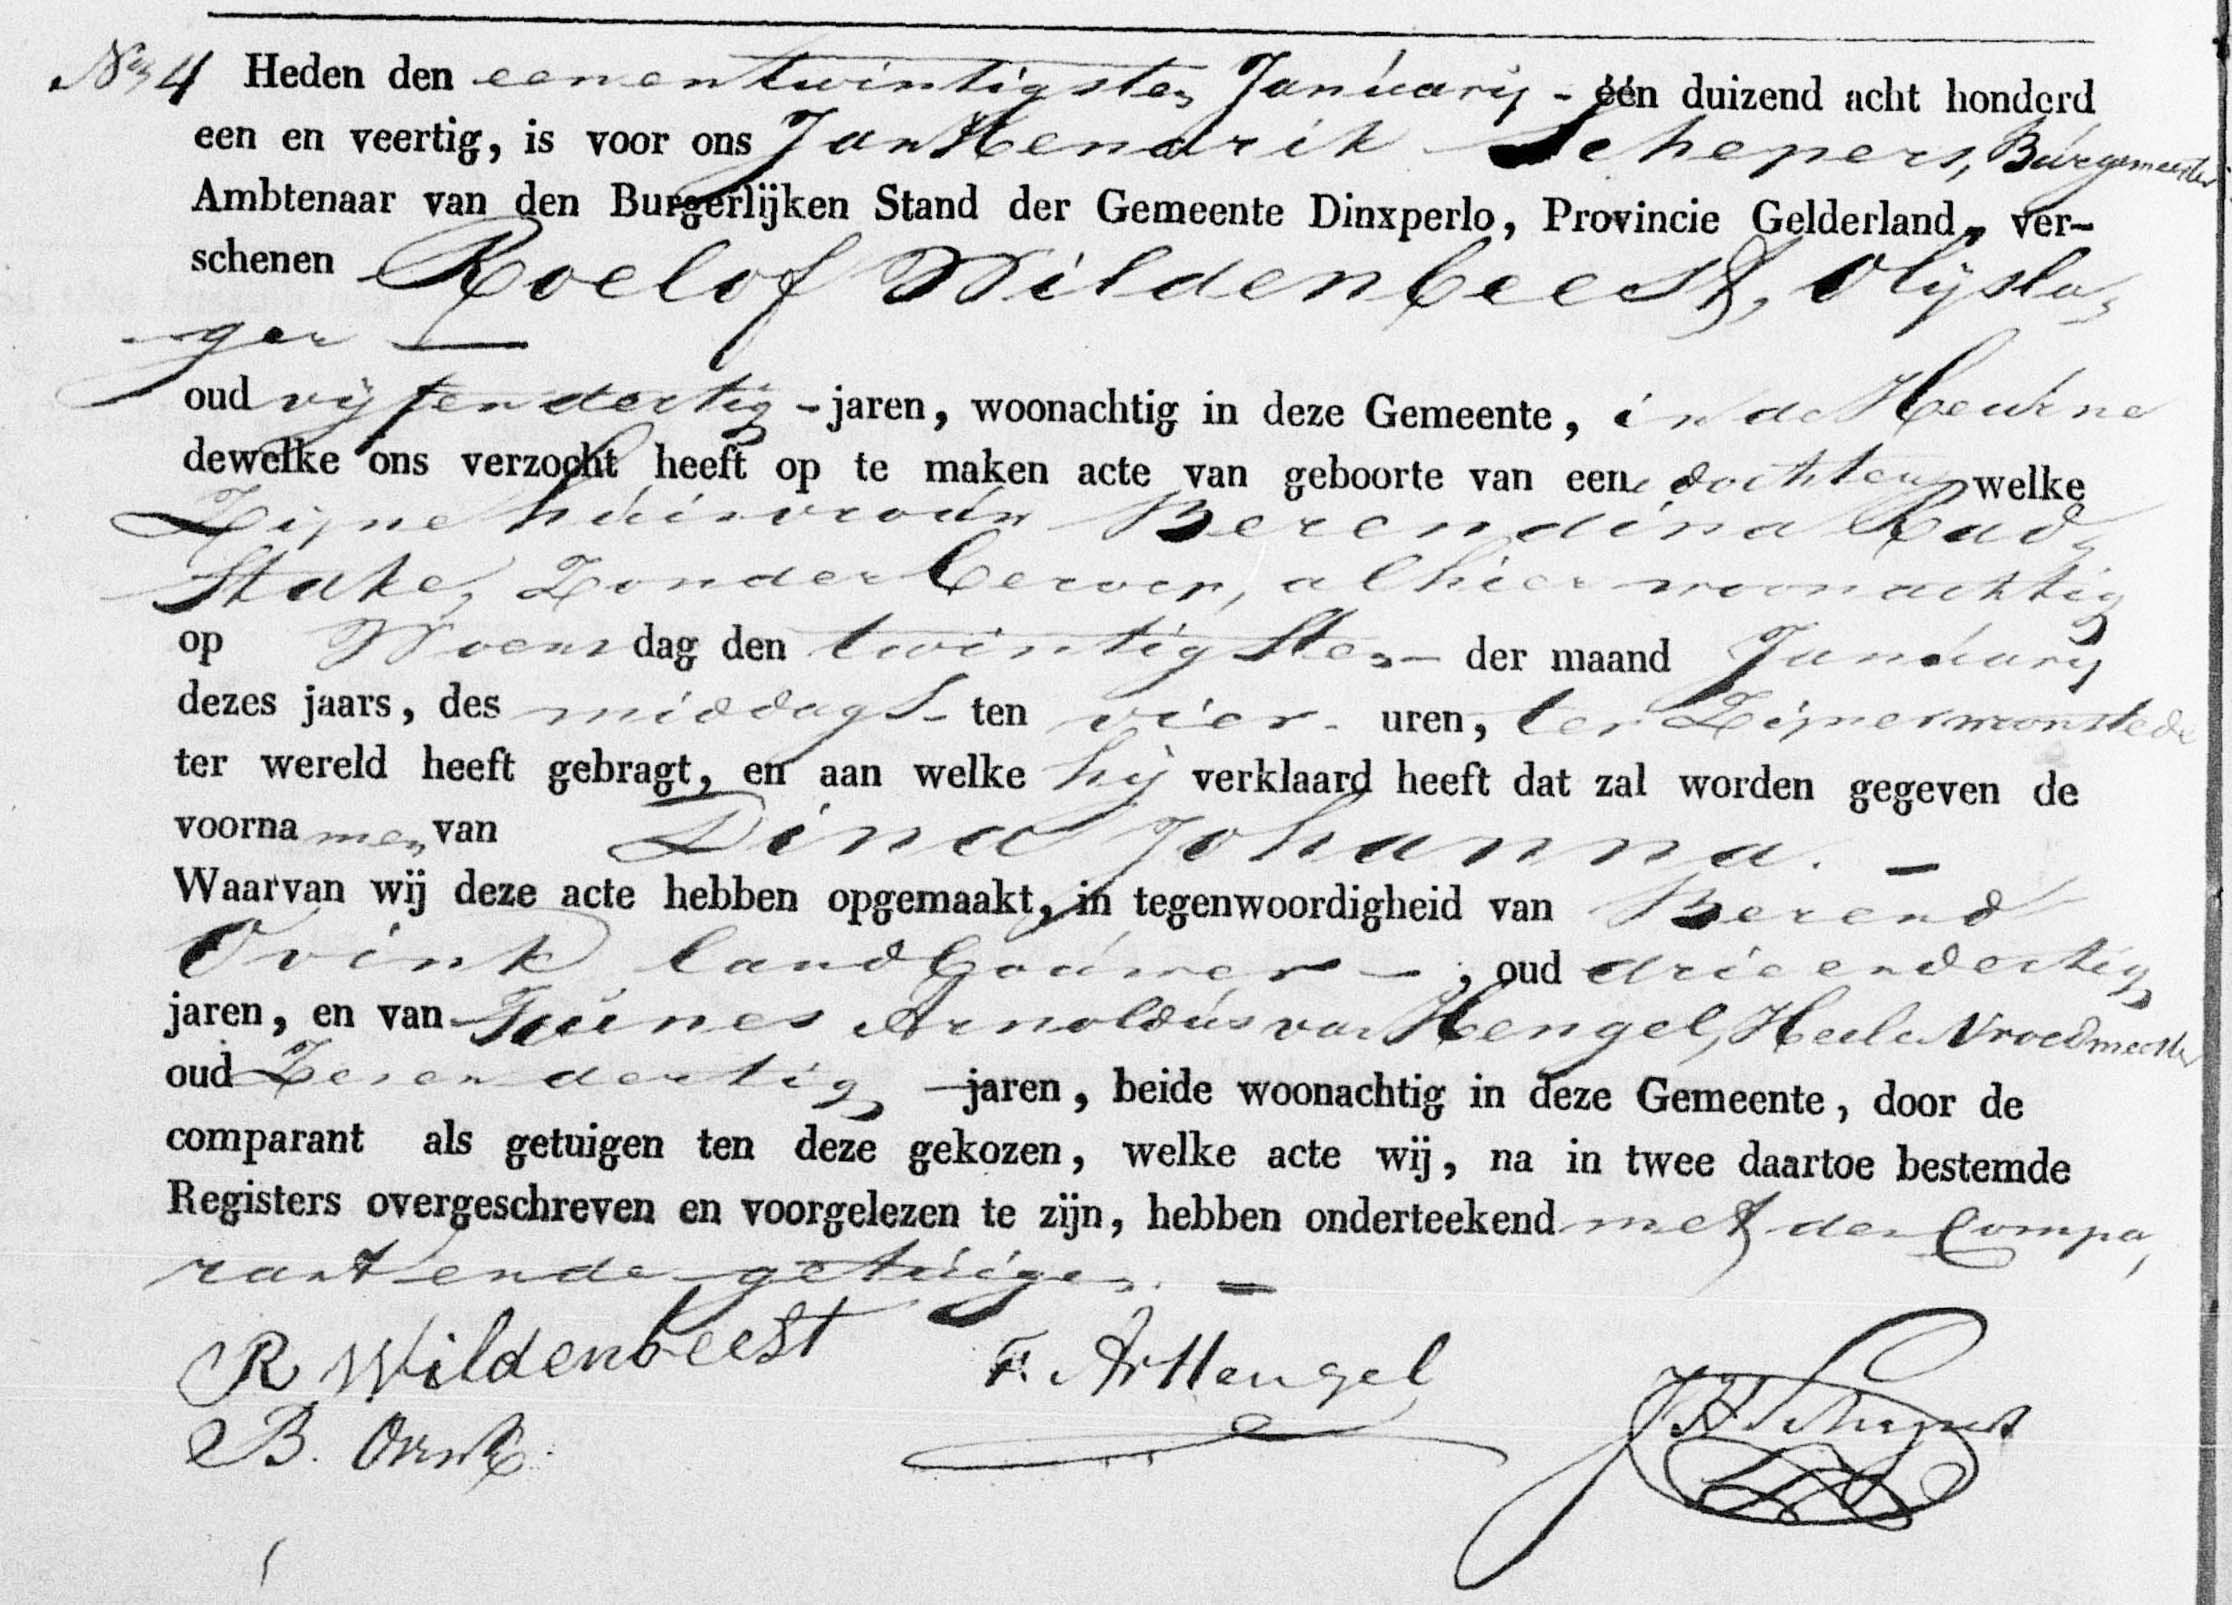 No 4 Heden den eenentwintigsten January - één duizend acht honderd
een en veertig, is voor ons Jan Hendrik Schepers, Burgemeester
Ambtenaar van den Burgerlijken Stand der Gemeente Dinxperlo, Provincie Gelderland, ver-
schenen Roelof Wildenbeest, Olijsla-
-ger —
oud vijfendertig - jaren, woonachtig in deze Gemeente, in de Heurne
dewelke ons verzocht heeft op te maken acte van geboorte van eene dochter welke
Zijne huisvrouw Berendina Rad-
stake, Zonder beroep, alhier woonachtig
op Woensdag den twintigsten - der maand January
dezes jaars, des middags - ten vier - uren, ter Zijner woonstede
ter wereld heeft gebragt, en aan welke hij verklaard heeft dat zal worden gegeven de
voornamen van Dina Johanna. —
Waarvan wij deze acte hebben opgemaakt, in tegenwoordigheid van Berend
Ovink landbouwer - , oud drieendertig
jaren, en van Teunes Arnoldus van Hengel, Heel & Vroedmeester
oud Zesendertig - jaren, beide woonachtig in deze Gemeente, door de
comparant als getuigen ten deze gekozen, welke acte wij, na in twee daartoe bestemde
Registers overgeschreven en voorgelezen te zijn, hebben onderteekend met den Compa-
rant en de getuigen. —
R Wildenbeest T. A v Hengel JH Schepers
B. Ovink